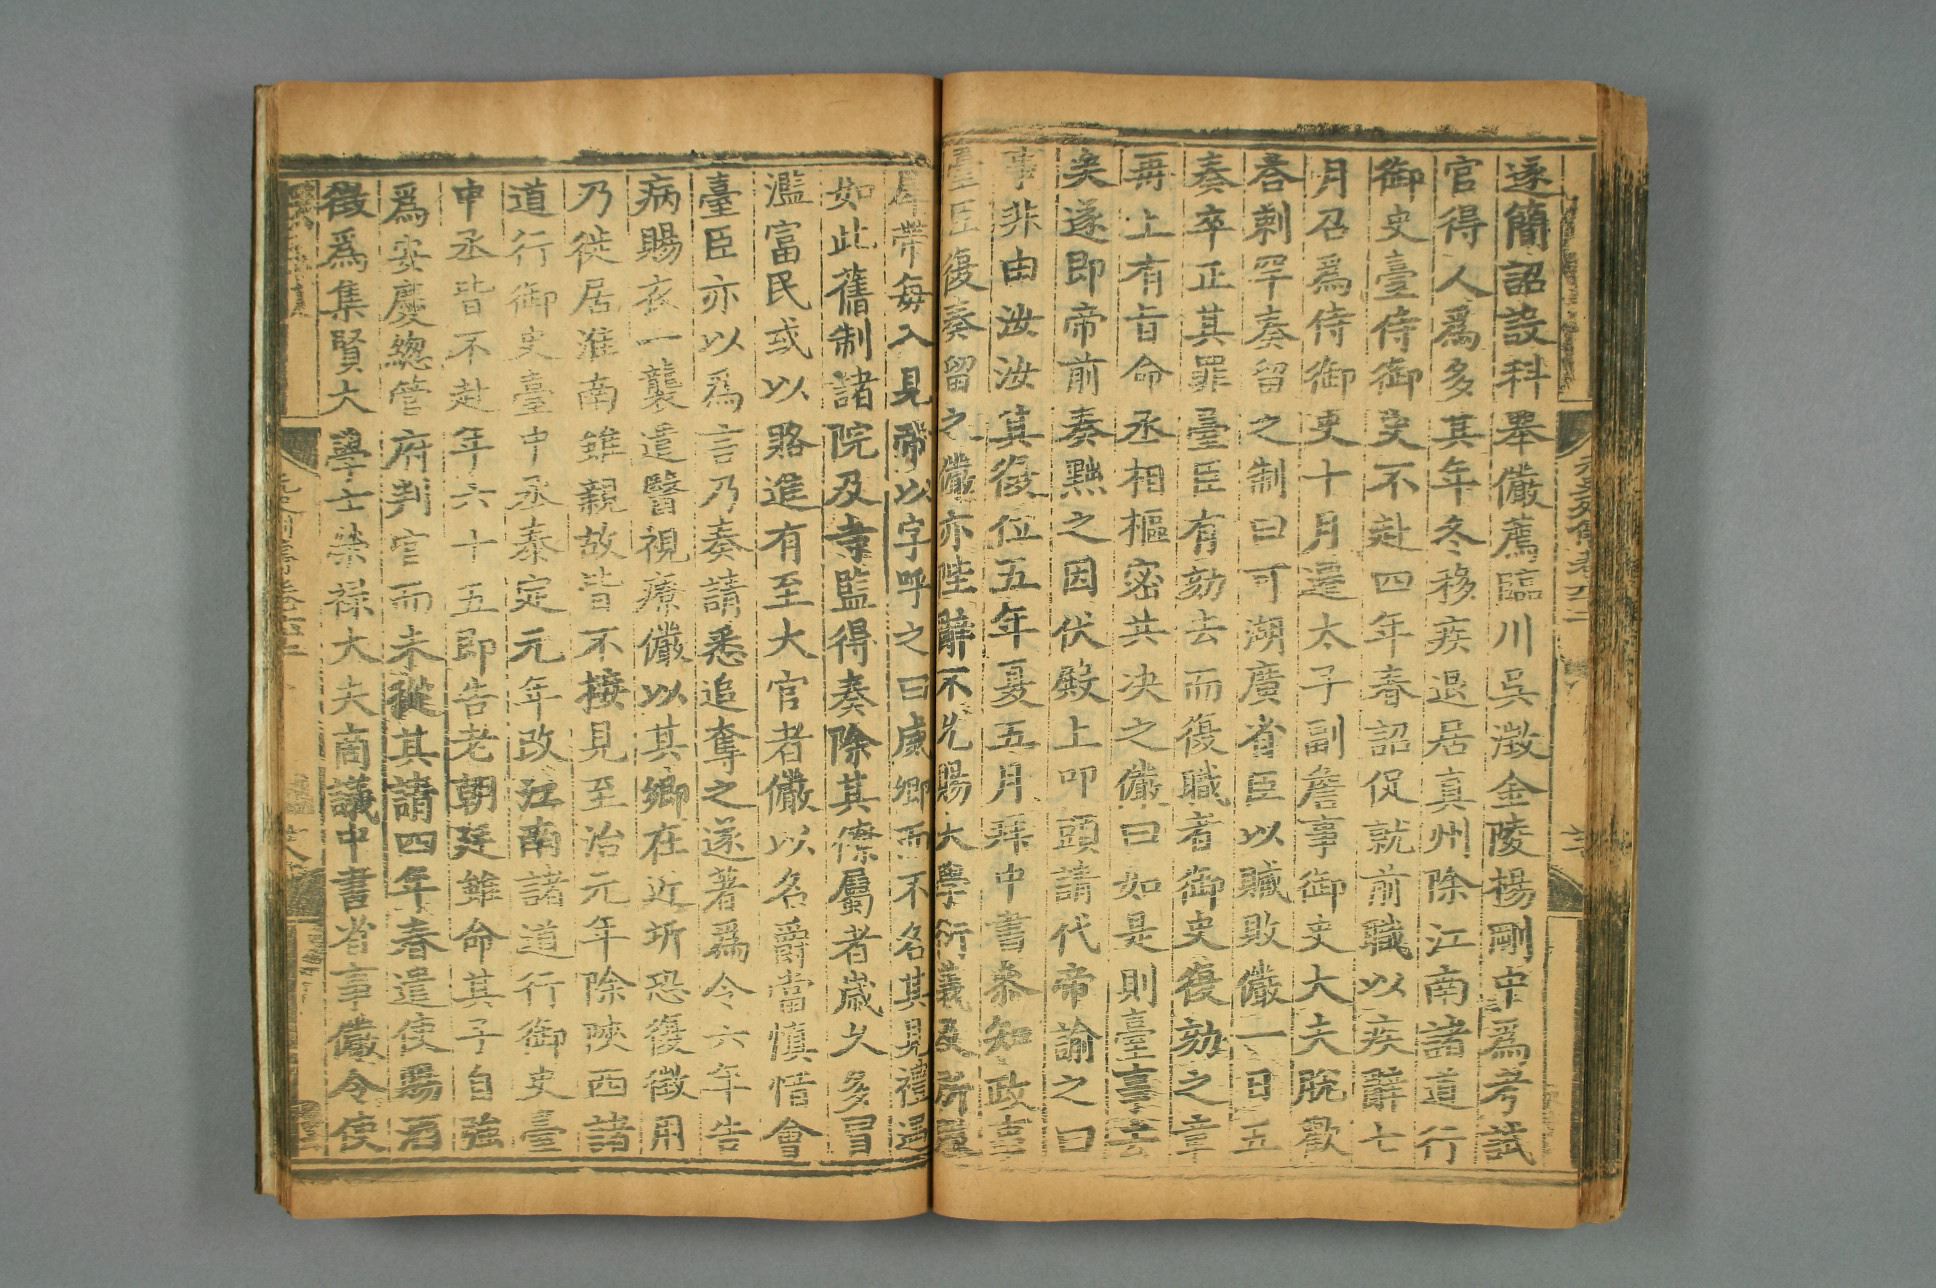 遂簡詔設科舉儼薦臨川吳澂金陵楊剛中爲考試
官得人爲多其年冬移疾退居真州除江南諸道行
御史臺侍御史不赴四年春詔促就前職以疾辭七
月召爲侍御史十月遷太子副詹事御史大夫脫歡
荅剌罕奏留之制曰可湖廣省臣以贓敗儼一日五
奏卒正其罪臺臣有劾去而復職者御史復劾之章
再上有旨命丞相樞密共决之儼曰如是則臺事去
矣遂即帝前奏黜之因伏殿上叩頭請代帝諭之曰
事非由汝汝其復位五年夏五月拜中書參知政事
臺臣復奏留之儼亦陛辭不允賜大學衍義及所
帶每入見帝以字呼之曰威卿而不名其見禮遇
如此舊制諸院及寺監得奏除其僚屬者歲久多冒
濫富民或以賂進有至大官者儼以名爵當慎惜會
臺臣亦以爲言乃奏請悉追奪之遂著爲令六年告
病賜衣一襲遣醫視療儼以其鄉在近圻恐復徵用
乃徙居淮南雖親故皆不接見至治元年除陝西諸
道行御史臺中丞泰定元年改江南諸道行御史臺
中丞皆不赴年六十五即告老朝廷雖命其子自強
爲安慶總管府判官而未從其請四年春遣使賜酒
徵爲集賢大學士榮祿大夫商議中書省事儼令使